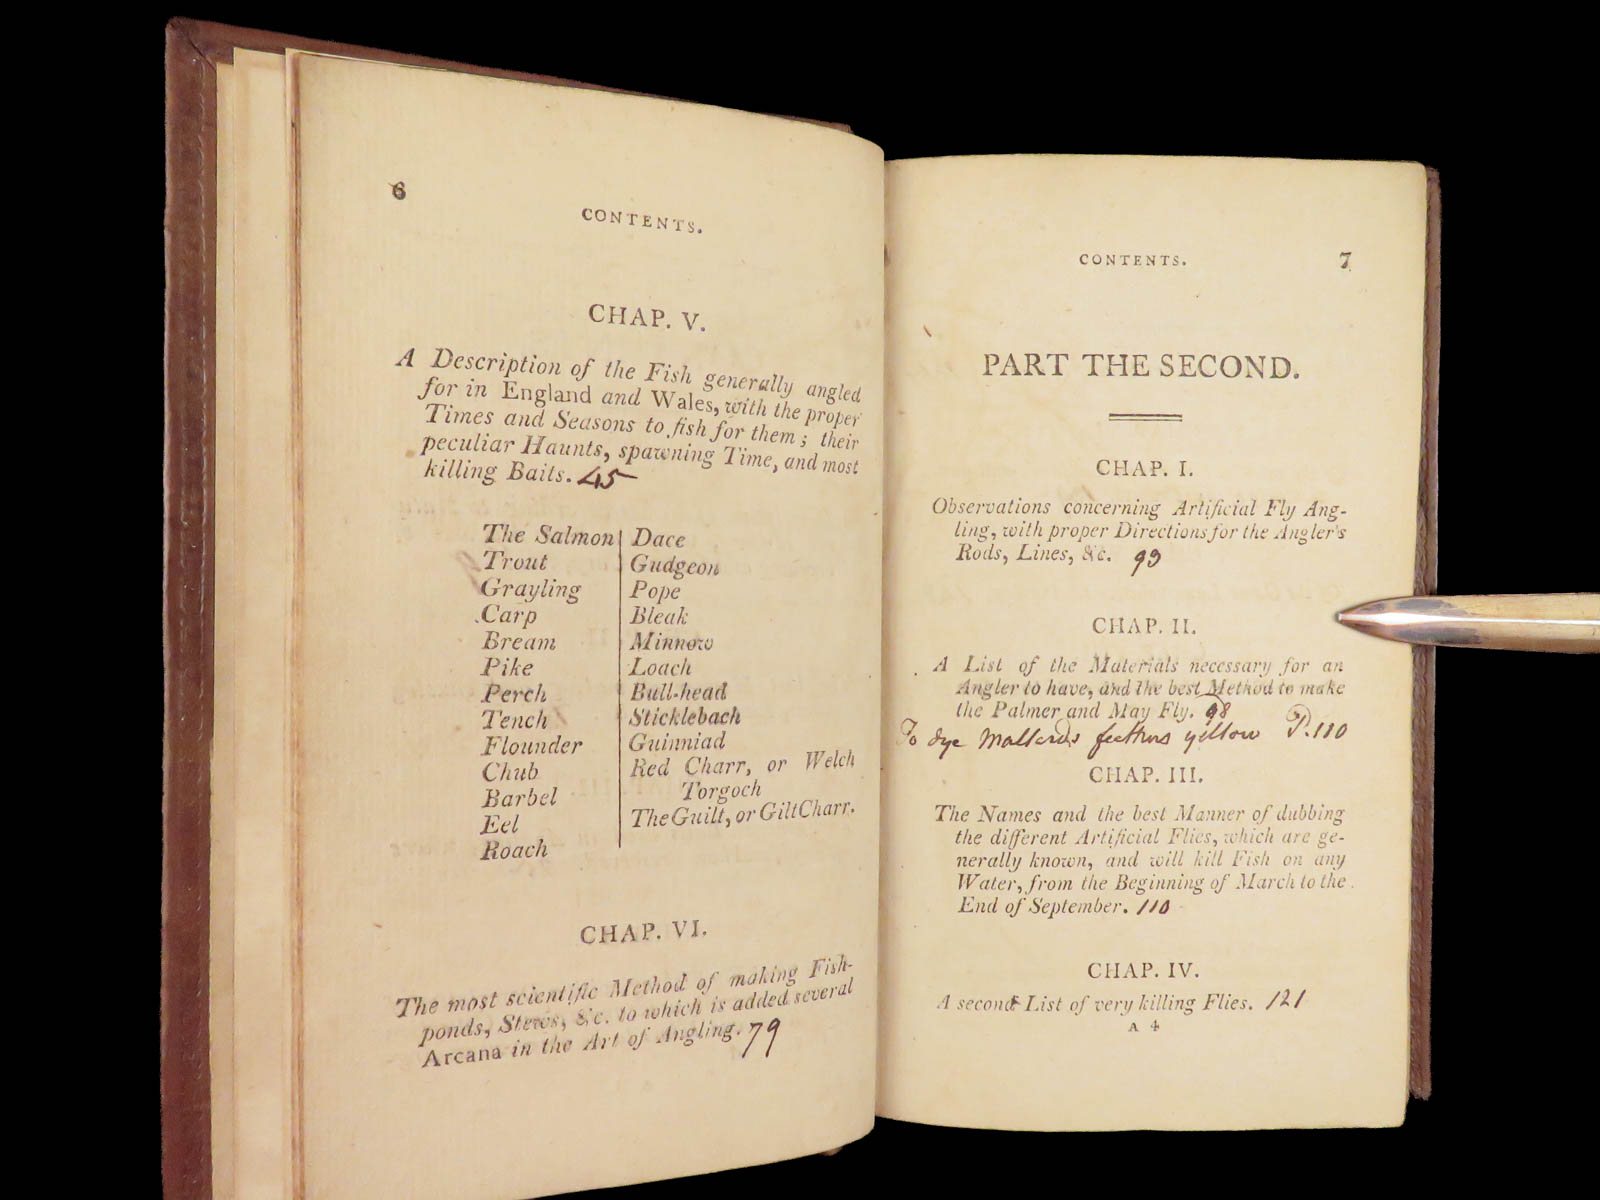 6
CONTENTS.
CHAP. V.
A Description of the Fish generally angled
for in England and Wales, with the proper
Times and Seasons to fish for them; their
peculiar Haunts, spawning Time, and most
killing Baits. 45
The Salmon
Trout
Grayling
Carp
Bream
Pike
Perch
Tench
Flounder
Chub
Barbel
Eel
Roach
Dace
Gudgeon
Pope
Bleak
Minnow
Loach
Bull-head
Sticklebach
Guinniad
Red Charr, or Welch
Torgoch
The Guilt, or Gilt Charr.
CHAP. VI.
The most scientific Method of making Fish-
ponds, Stews, &c. to which is added several
Arcana in the Art of Angling. 79
CONTENTS. 7
PART THE SECOND.
CHAP. I.
Observations concerning Artificial Fly Ang-
ling, with proper Directions for the Angler's
Rods, Lines, &c. 93
CHAP. II.
A List of the Materials necessary for an
Angler to have, and the best Method to make
the Palmer and May Fly. 98
To dye Mallards feathers yellow P. 110
CHAP. III.
The Names and the best Manner of dubbing
the different Artificial Flies, which are ge-
nerally known, and will kill Fish on any
Water, from the Beginning of March to the
End of September. 110
CHAP. IV.
A second List of very killing Flies. 121
A 4